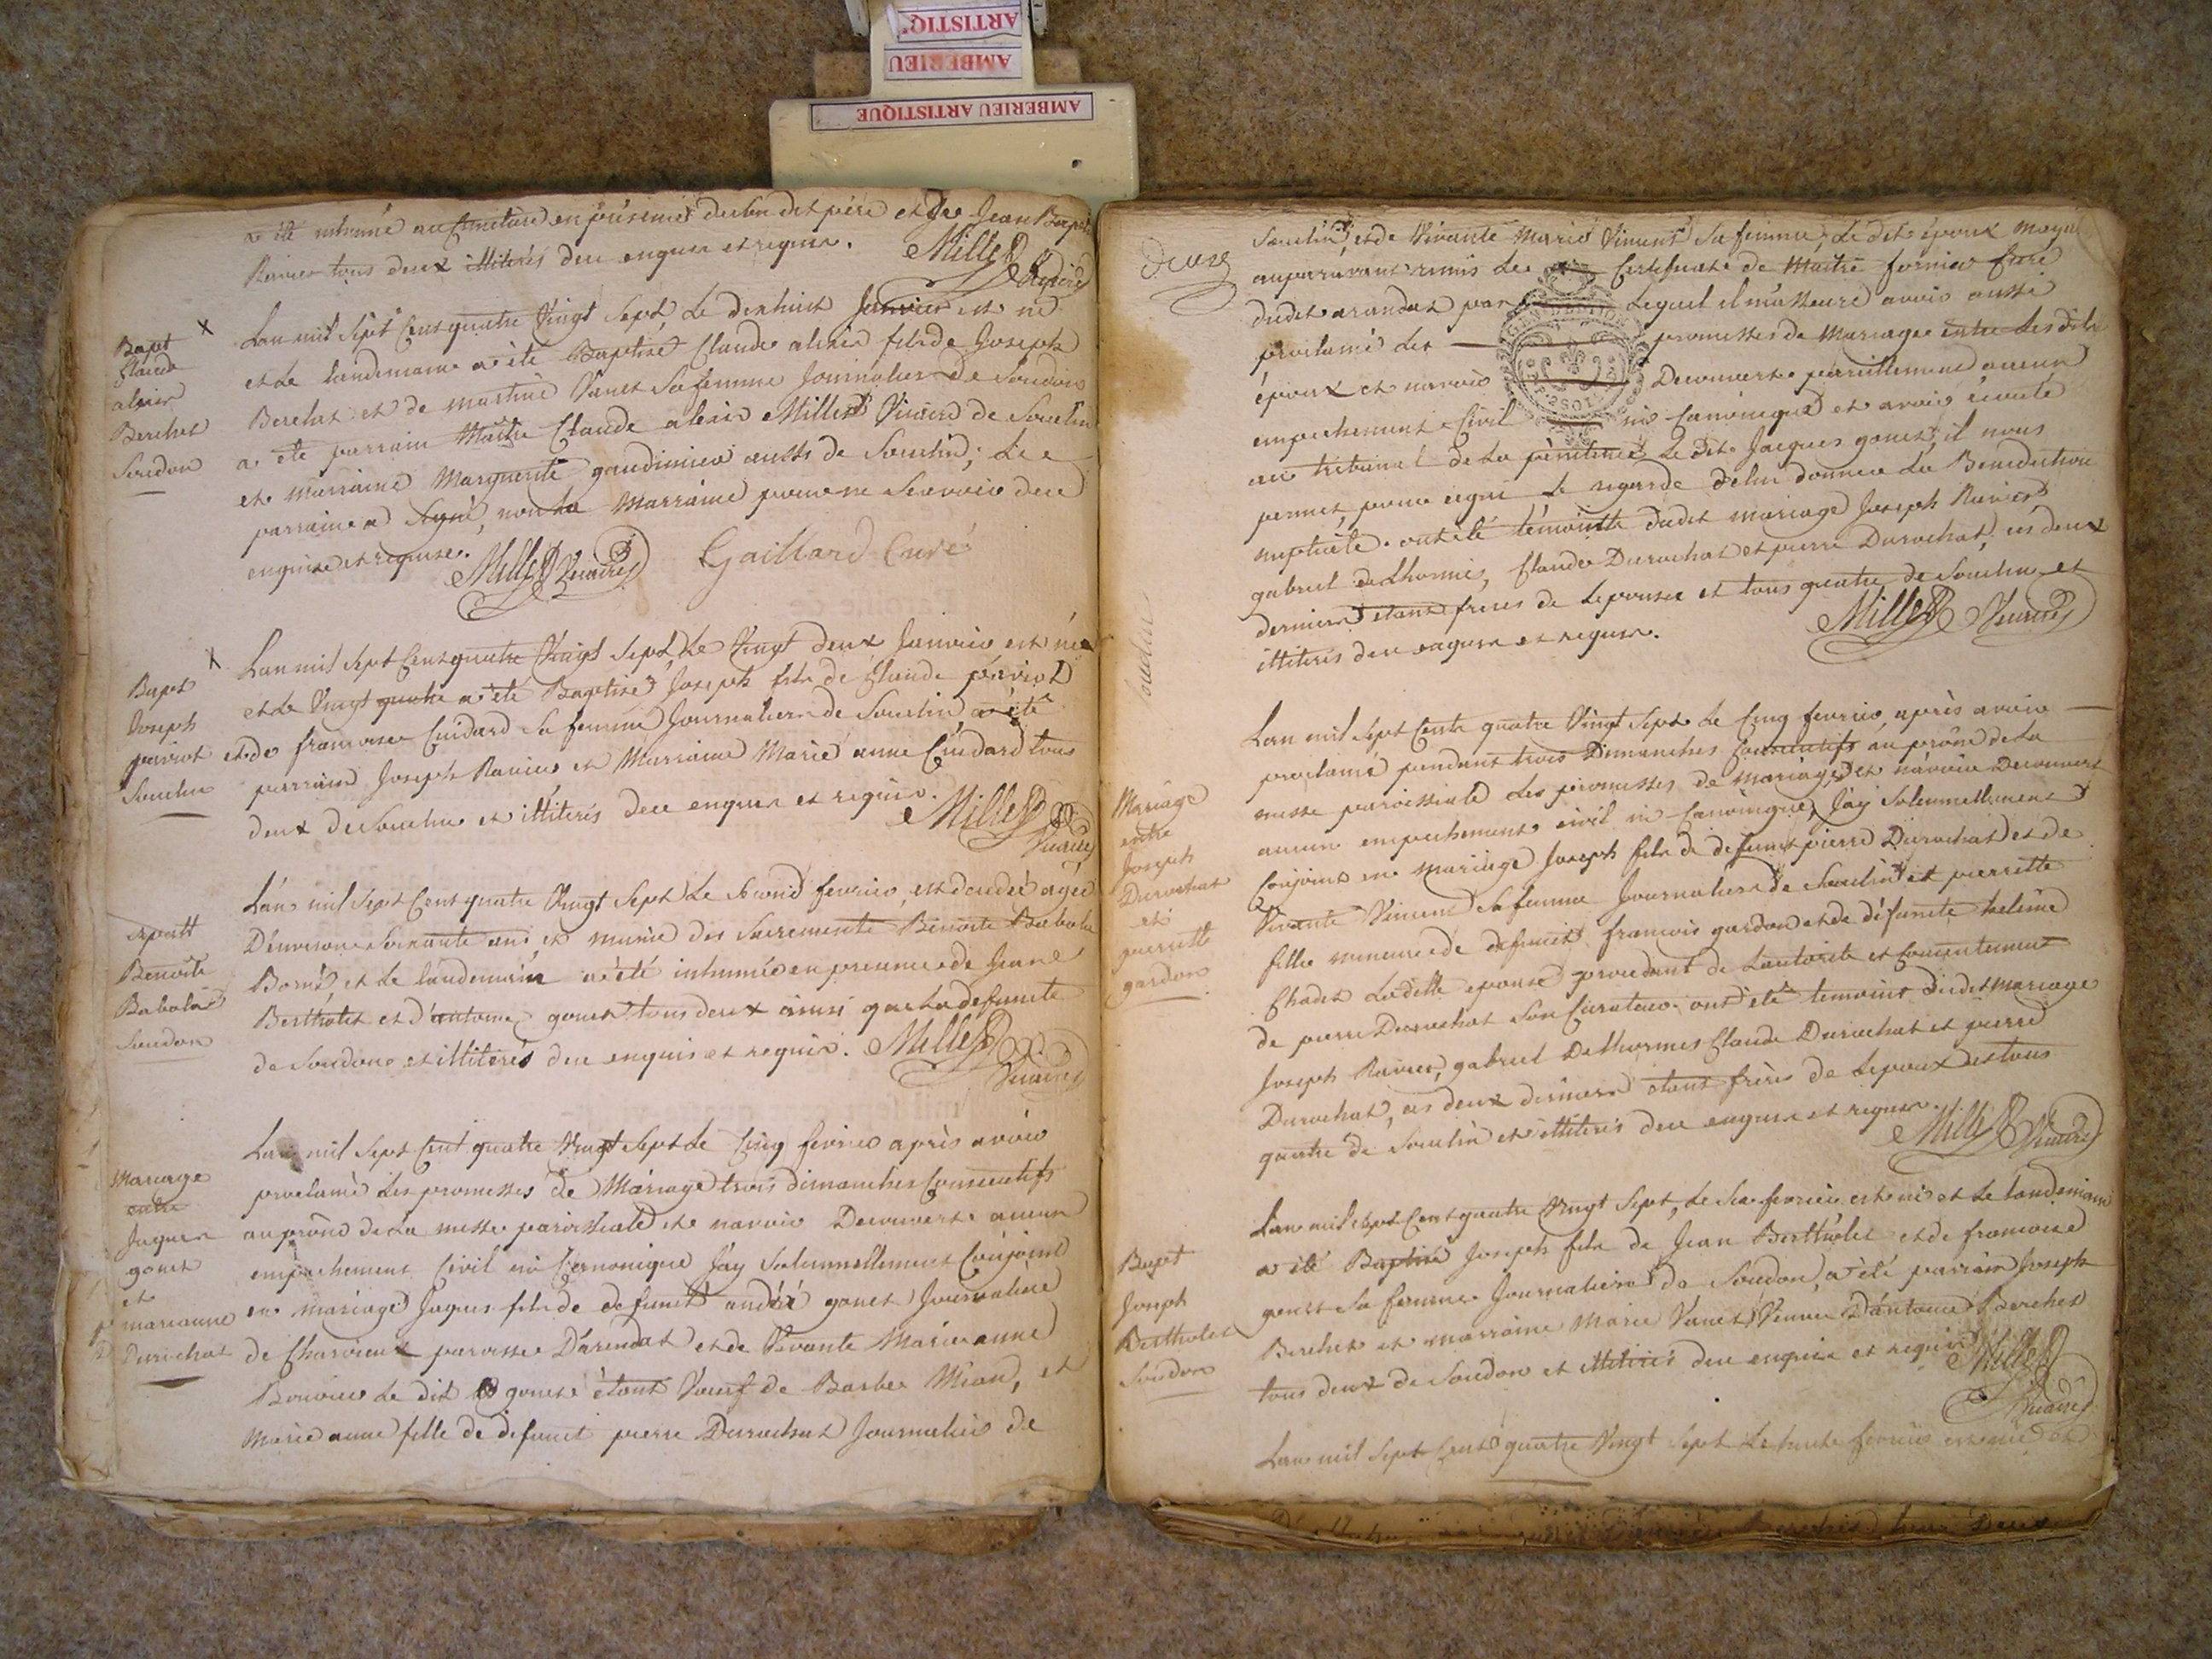 ARTISTIQ
AMBERIEU
AMBERIEU ARTISTIQUE
a été inhumé au Cimetiere en présence du dit père et de Jean Bapte
Ravier tous deux illiterés deu enquis et requis. Millet Vicaire
Bapt
Claude
alexis
Berchet
Soudon
x
Lan mil Sept Cent quatre Vingt Sept, Le dixhuit Janvier est né
et Le landemain a été Baptisé Claude alexis fils de Joseph
Berchet et de Vanet Sa femme Journalier de Soudon
a été parrain Maitre Claude alexis Millet Vicaire de Souclin
et marraine Marguerite aussi de Souclin; Le
parrain a Signé, non La Marraine pour ne Scavoir deu
enquise et requise. Millet Vicaire Gaillard Curé
Bapt
Joseph
perriot
Souclin
x
Lan mil Sept Cent quatre Vingt Sept, Le Vingt deux Janvier est né
et Le Vingt quatre a été Baptisé Joseph fils de Claude perriot
et de francoise Cuidard Sa femme Journaliers de Souclin, a été
parrain Joseph Ravier et Marraine Marie anne Cuidard tous
deux de Souclin et illiterés deu enquis et requis. Millet
Vicaire
Benoite
Soudon
Lan mil Sept Cent quatre Vingt Sept Le Second fevrier, est decedée agée
Denviron Soixante ans et munie des Sacrements Benoite
et Le landemain a été inhumée en presence de
Bertholet et d'antoine gonet tous deux ainsi que La defuncte
de Soudon et illiterés deu enquis et requis. Millet
Vicaire
Mariage
entre
Jaques
gonet
et
marianne
Durochat
Lan mil Sept Cent quatre Vingt Sept Le Cinq fevrier après avoir
proclamé Les promesses de Mariage trois dimanches Consecutifs
au prône de La messe paroissiale et navoir Decouvert aucun
empechement Civil ni Canonique Jay Solemnellement Conjoint
en mariage Jaques fils de defunct andré gonet Journalier
de Charvieux paroisse Darandat et de Vivante Marie anne
Bouvier Le dit gonet étant Veuf de Barbe , et
Marie anne fille de defunct pierre Durochat Journalier de
Souclin et de Vivante Marie Vincent Sa femme; Le dit époux
auparavant remis Le Certificat de Maitre fornier Curé
dudit arandat par Lequel il m'asseure avoir aussi
proclamé Les promesses de Mariage entre Les dits
époux et navoir Decouvert pareillement aucun
empechement Civil ni Canonique et avoir écouté
au tribunal de La pénitence Le dit Jacques gonet, il nous
permet, pour ce qui Le regarde de leur donner La Benediction
nuptiale. ont été témoins dudit mariage Joseph Ravier
gabriel Delhormes, Claude Durochat et pierre Durochat, ces deux
derniers étant freres de Lepouse et tous quatre de Souclin et
illiterés deu enquis et requis. Millet Vicaire
Mariage
entre
Joseph
Durochat
et
pierrette
gardon
Lan mil Sept Cent quatre Vingt Sept Le Cinq fevrier, après avoir
proclamé pendant trois Dimanches Consecutifs au prône de La
messe paroissiale Les promesses de mariage et navoir Decouvert
aucun empechement civil ni Canonique, Jay Solemnellement
Conjoint en mariage Joseph fils de defunct pierre Durochat et de
Vivante Vincent Sa femme Journalier de Souclin et pierrette
fille mineure de defunct francois gardon et de défuncte
Ladite epouse procedant de Lautorité et Consentement
de pierre Durochat Son Curateur. ont été temoins dudit mariage
Joseph Ravier, gabriel Delhormes Claude Durochat et pierre
Durochat, ces deux derniers étant frères de Lepoux et tous
quatre de Souclin et illiterés deu enquis et requis. Millet Vicaire
Bapt
Joseph
Bertholet
Soudon
Lan mil Sept Cent quatre Vingt Sept, Le Six fevrier est né et Le landemain
a été Baptisé Joseph fils de Jean Bertholet et de francoise
gonet Sa femme Journaliers de Soudon, a été parrain Joseph
Berchet et marraine Marie Vanet Veuve D'antoine Berchet
tous deux de Soudon et illiterés deu enquis et requis. Millet
Vicaire
Lan mil Sept Cent quatre Vingt Sept Le fevrier est né et